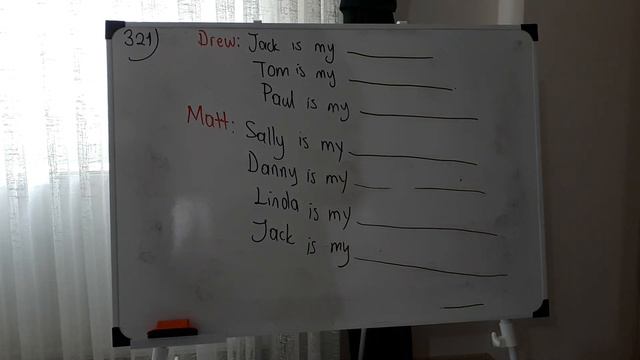 321)
Drew: Jack is my ______
Tom is my ______
Paul is my ______
Matt: Sally is my ______
Danny is my __ ____
Linda is my ______
Jack is my ______